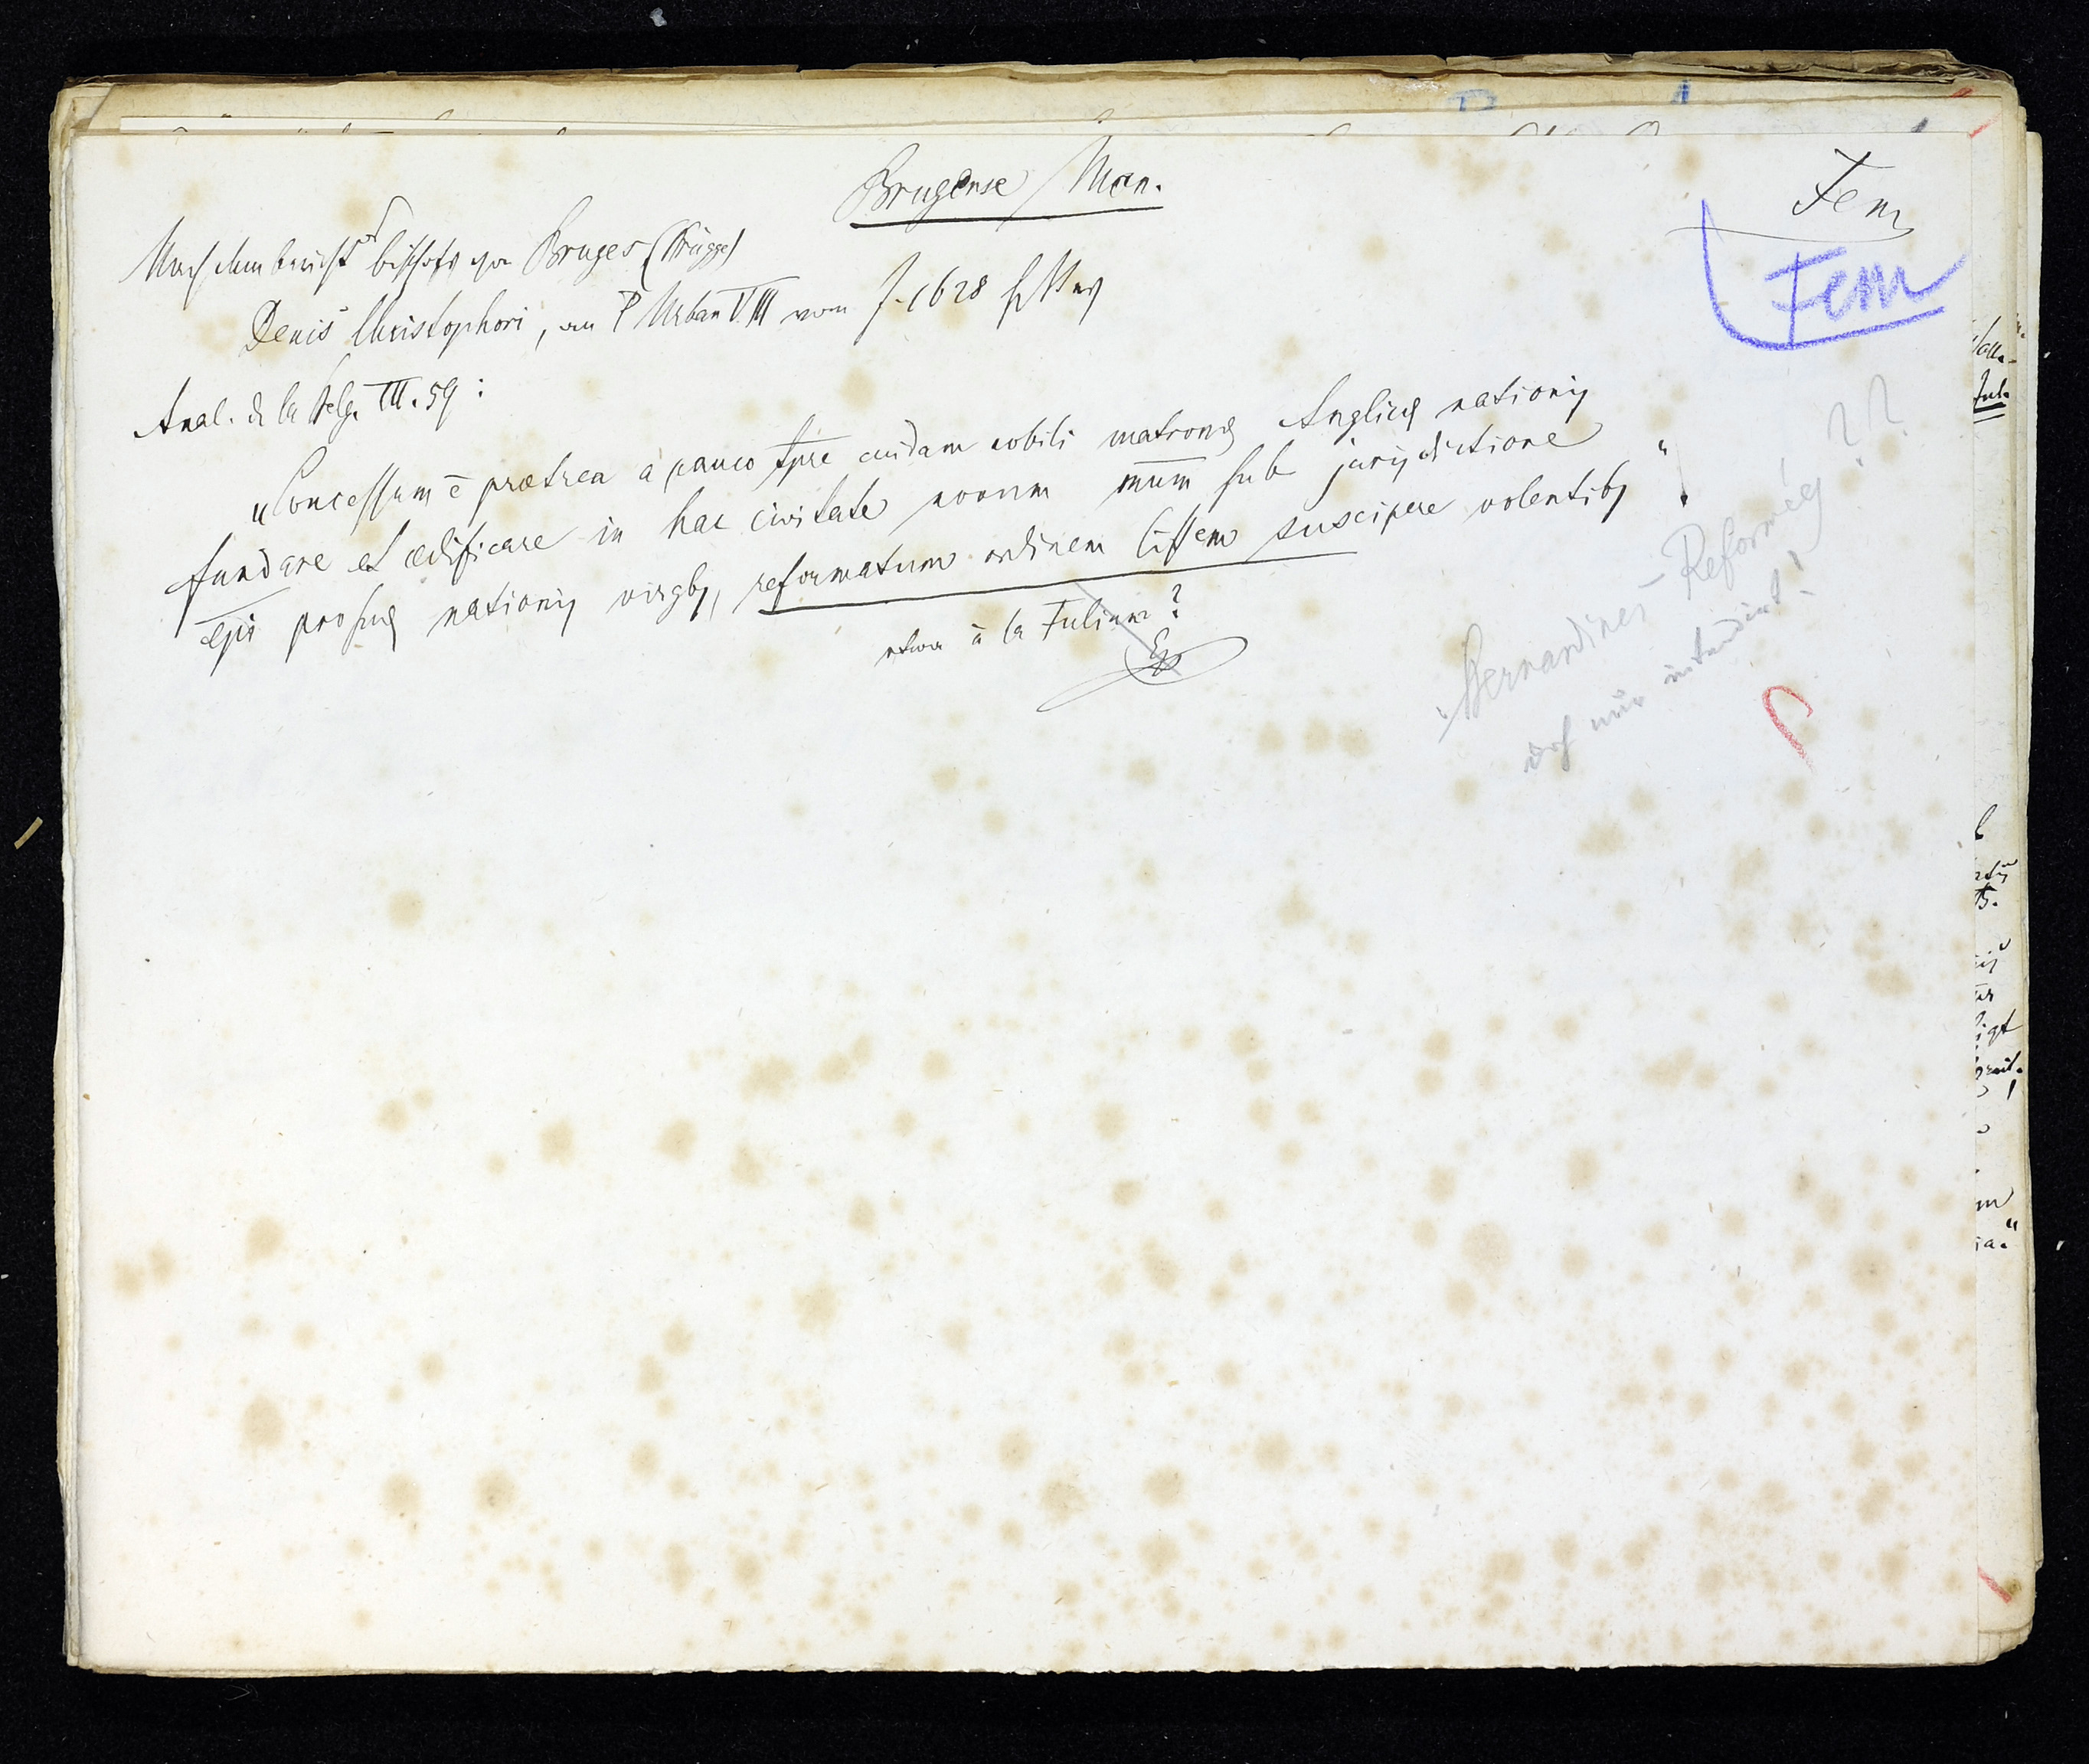 Brugense Mon.
Fem
Fem
Nach dem bericht d bischofs von Bruges (Brügge)
Denis Christophori, an P Urban VIII vom J. 1628
Anal. de la Belg. III. 59 :
„Concessum ē praetrea a pauco tpre cuidam nobili matronę Anglicę nationis
fundare et ædificare in hac civitate novum mūm sub jurisdictione
epi pro suę nationis virgbȝ, reformatum ordinem Cissem suscipere volentibȝ“!
etwa à la Fulium?
Bernardines-Reformées ??
doch nur intendirt!